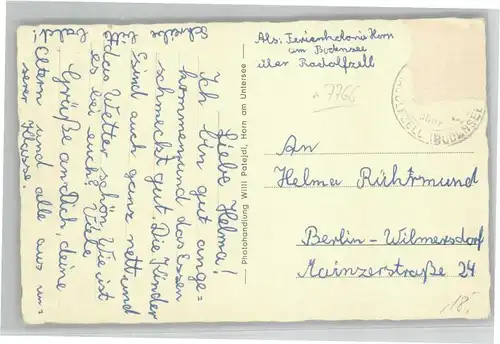 Liebe Helma!
Ich bin gut ange=
kommen und das Essen
schmeckt gut. Die Kinder
sind auch ganz nett, und
das Wetter schön, Wie ist
es bei euch? Viele
Grüße an Dich, deine
Eltern und alle aus un=
serer Klasse.
schreibe
bald!
Photohandlung Willi Patejdl, Horn am Untersee
Abs. Ferienkolonie Horn
am Bodensee
über Radolfzell
7766
über
(BODENSEE)
An
Helma Rührmund
Berlin-Wilmersdorf
Mainzerstraße 24
18,-